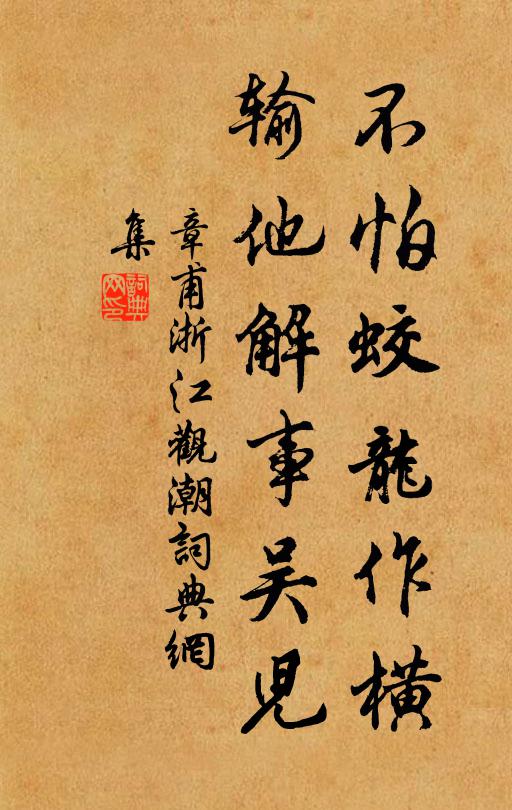 不怕蛟龍作橫
輸他解事吴児
章甫浙江觀潮詞典網
集
詞典網印